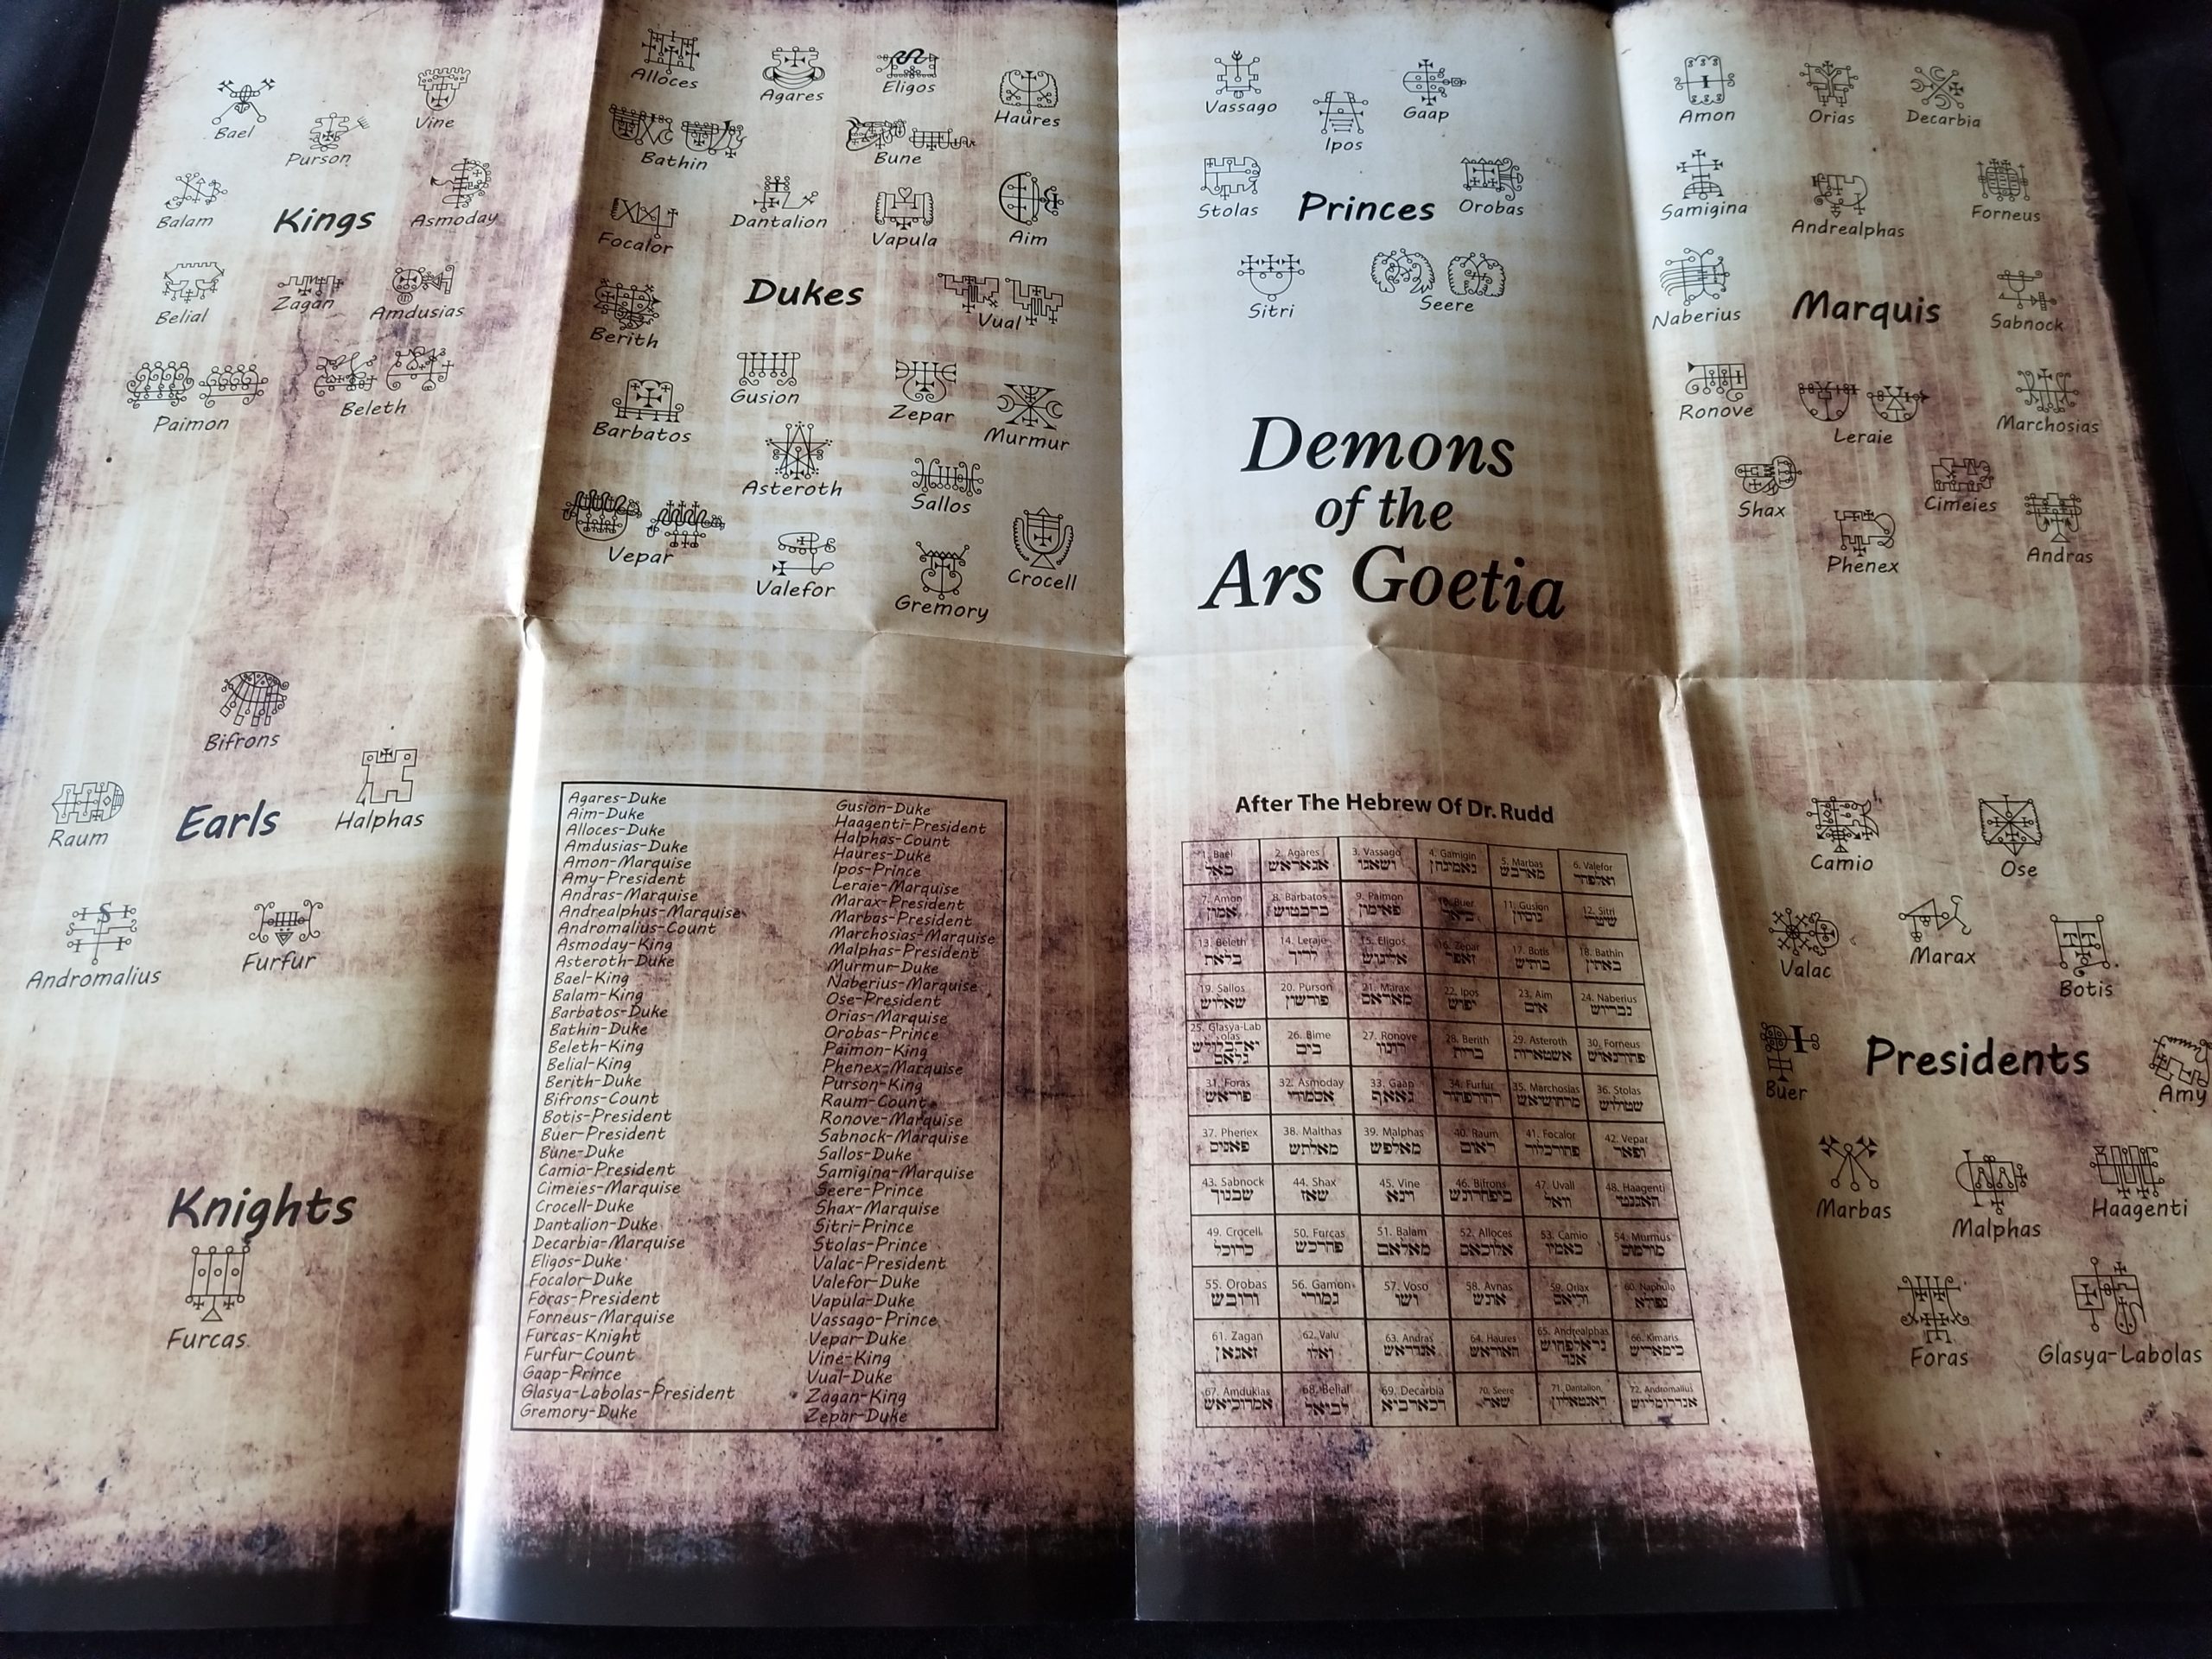 Bael
Purson
Vine
Balam
Kings
Asmoday
Belial
Zagan
Amdusias
Paimon
Beleth
Alloces
Agares
Eligos
Haures
Bathin
Bune
Focalor
Dantalion
Vapula
Aim
Berith
Dukes
Vual
Gusion
Barbatos
Zepar
Murmur
Asteroth
Sallos
Vepar
Valefor
Gremory
Crocell
Vassago
Ipos
Gaap
Stolas
Princes
Orobas
Sitri
Seere
Demons
of the
Ars Goetia
Amon
Orias
Decarbia
Samigina
Andrealphas
Forneus
Naberius
Marquis
Sabnock
Ronove
Leraie
Marchosias
Shax
Cimeies
Phenex
Andras
Bifrons
Raum
Earls
Halphas
Andromalius
Furfur
Knights
Furcas
Agares-Duke
Aim-Duke
Alloces-Duke
Amdusias-Duke
Amon-Marquise
Amy-President
Andras-Marquise
Andrealphus-Marquise
Andromalius-Count
Asmoday-King
Asteroth-Duke
Bael-King
Balam-King
Barbatos-Duke
Bathin-Duke
Beleth-King
Belial-King
Berith-Duke
Bifrons-Count
Botis-President
Buer-President
Bune-Duke
Camio-President
Cimeies-Marquise
Crocell-Duke
Dantalion-Duke
Decarbia-Marquise
Eligos-Duke
Focalor-Duke
Foras-President
Forneus-Marquise
Furcas-Knight
Furfur-Count
Gaap-Prince
Glasya-Labolas-President
Gremory-Duke
Gusion-Duke
Haagenti-President
Halphas-Count
Haures-Duke
Ipos-Prince
Leraie-Marquise
Marax-President
Marbas-President
Marchosias-Marquise
Malphas-President
Murmur-Duke
Naberius-Marquise
Ose-President
Orias-Marquise
Orobas-Prince
Paimon-King
Phenex-Marquise
Purson-King
Raum-Count
Ronove-Marquise
Sabnock-Marquise
Sallos-Duke
Samigina-Marquise
Seere-Prince
Shax-Marquise
Sitri-Prince
Stolas-Prince
Valac-President
Valefor-Duke
Vapula-Duke
Vassago-Prince
Vepar-Duke
Vine-King
Vual-Duke
Zagan-King
Zepar-Duke
After The Hebrew Of Dr. Rudd
1. Bael
באל
2. Agares
אגאראש
3. Vassago
ושאגו
4. Gamigin
5. Marbas
מארבש
6. Valefor
7. Amon
אמון
8. Barbatos
ברבטוש
9. Paimon
פאימון
10. Buer
11. Gusion
גוסיון
12. Sitri
שיטרי
13. Beleth
בלאת
14. Leraje
15. Eligos
אליגוש
16. Zepar
זאפר
17. Botis
בותיש
18. Bathin
באתין
19. Sallos
שאלוש
20. Purson
פורשון
21. Marax
מאראס
22. Ipos
יפוש
23. Aim
אים
24. Naberius
נבריוש
25. Glasya-Lab
olas
26. Bime
בים
27. Ronove
רונוו
28. Berith
ברית
29. Asteroth
אשטארות
30. Forneus
31. Foras
פוראש
32. Asmoday
אסמודי
33. Gaap
גאאף
34. Furfur
35. Marchosias
36. Stolas
שטולוש
37. Phenex
פאניס
38. Malthas
מאלתש
39. Malphas
מאלפש
40. Raum
ראום
41. Focalor
42. Vepar
ופאר
43. Sabnock
שבנוך
44. Shax
שאז
45. Vine
וינא
46. Bifrons
47. Uvall
וואל
48. Haagenti
האגנטי
49. Crocell
כרוכל
50. Furcas
פהרכש
51. Balam
מאלאם
52. Alloces
אלוכאס
53. Camio
כאמיו
54. Murmus
מורמוס
55. Orobas
ורובש
56. Gamori
גמורי
57. Voso
ושו
58. Avnas
אונש
59. Oriax
60. Naphula
נפולא
61. Zagan
זאגאן
62. Valu
ואלו
63. Andras
אנדראש
64. Haures
האוראש
65. Andrealphas
66. Kimaris
כימאריש
67. Amdukias
אמדוכיאש
68. Belial
69. Decarbia
דכארביא
70. Seere
שאר
71. Dantalion
דאנטאליון
72. Andromalius
אנדרומליוש
Camio
Ose
Valac
Marax
Botis
Buer
Presidents
Amy
Marbas
Malphas
Haagenti
Foras
Glasya-Labolas